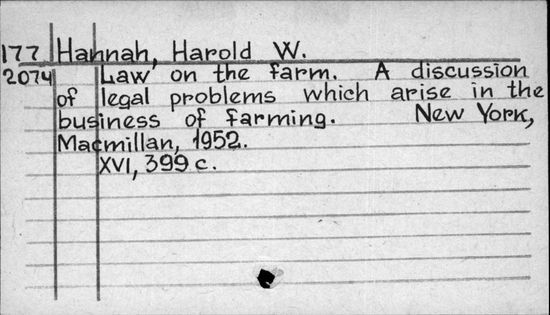 177 Hannah, Harold W.
2074 Law on the farm. A discussion
of legal problems which arise in the
business of farming. New York,
Macmillan, 1952.
XVI, 399 c.